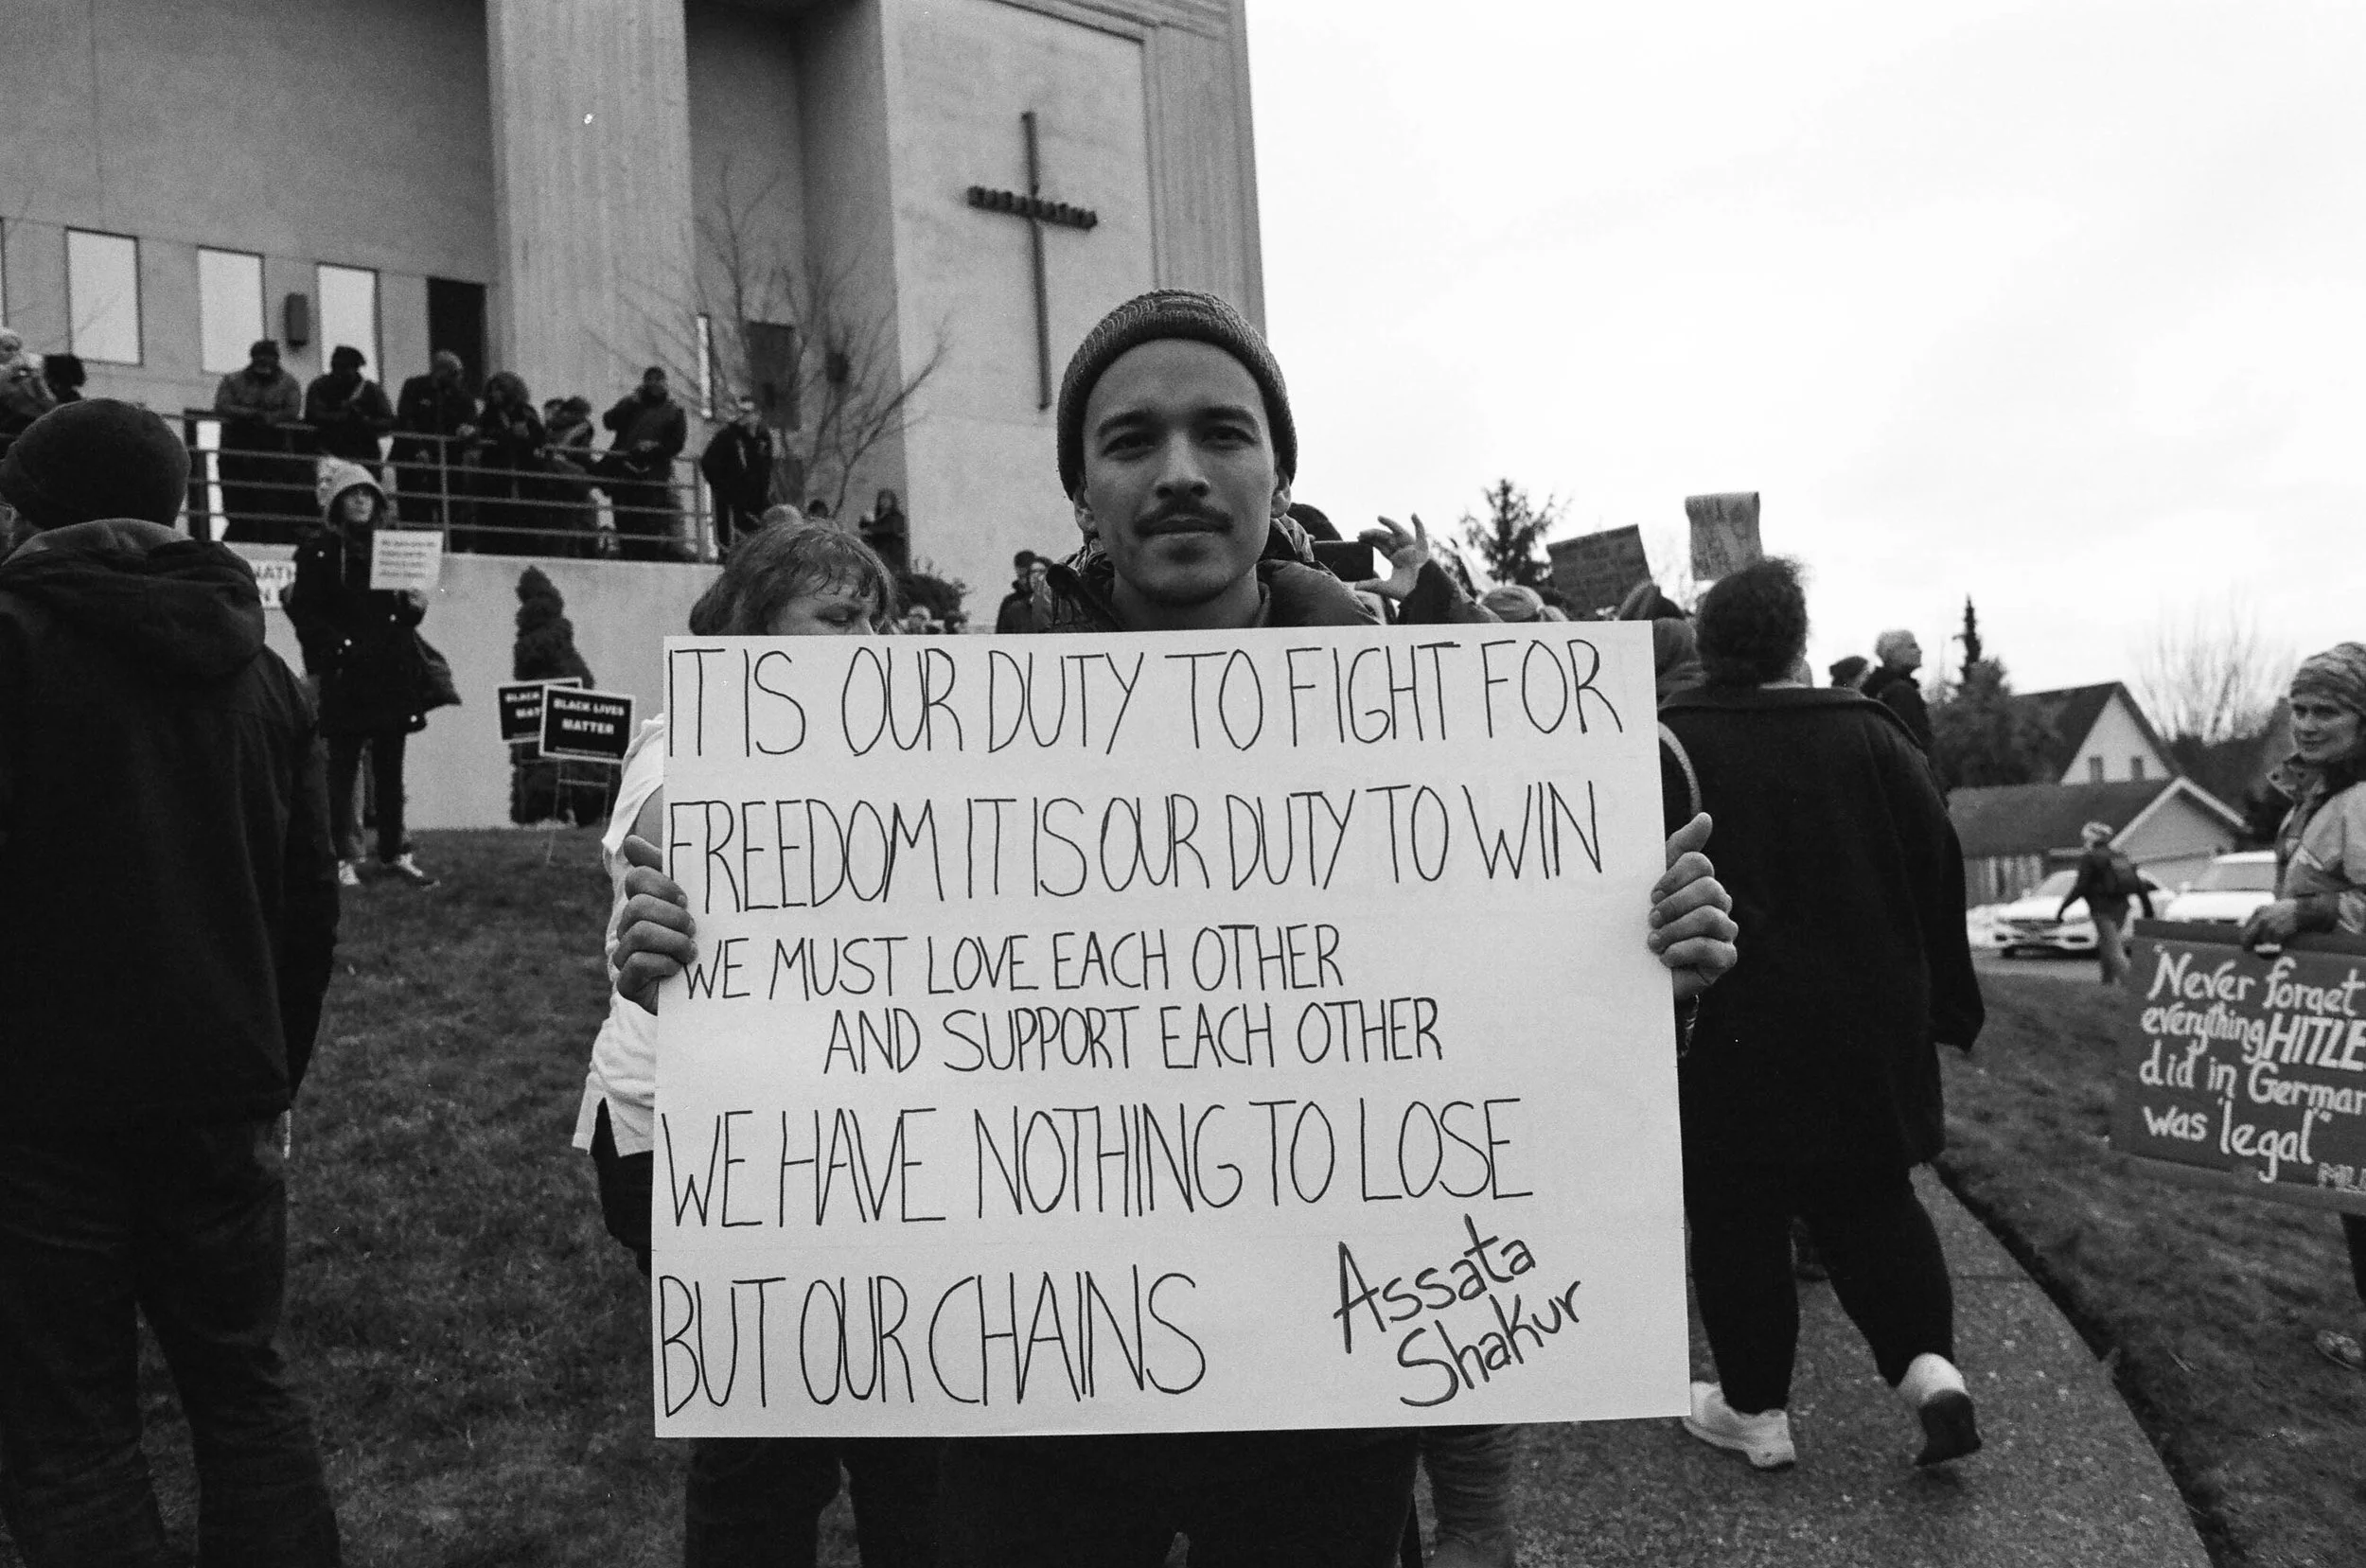 IT IS OUR DUTY TO FIGHT FOR
FREEDOM IT IS OUR DUTY TO WIN
WE MUST LOVE EACH OTHER
AND SUPPORT EACH OTHER
WE HAVE NOTHING TO LOSE
BUT OUR CHAINS
Assata
Shakur
BLACK
MAT
BLACK LIVES
MATTER
"Never forget
everything HITLE
did in German
was 'legal'"
MLK